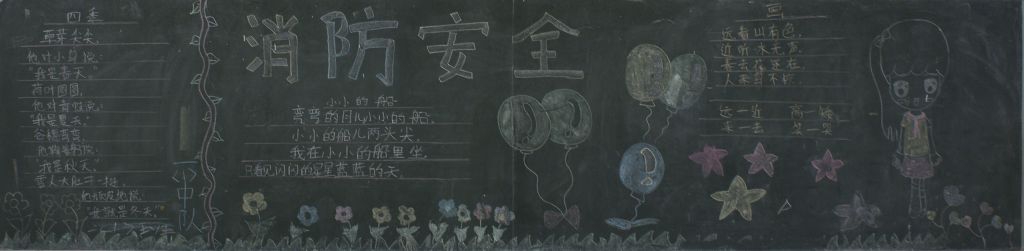 消防安全
四季
草芽尖尖，
他对小鸟说：
"我是春天。"
荷叶圆圆，
他对青蛙说：
"我是夏天。"
谷穗弯弯，
他鞠着躬说：
"我是秋天。"
雪人大肚子一挺，
他顽皮地说：
"我就是冬天。"
小小的船
弯弯的月儿小小的船，
小小的船儿两头尖，
我在小小的船里坐，
只看见闪闪的星星蓝蓝的天。
画
远看山有色，
近听水无声。
春去花还在，
人来鸟不惊。
远—近
来—去